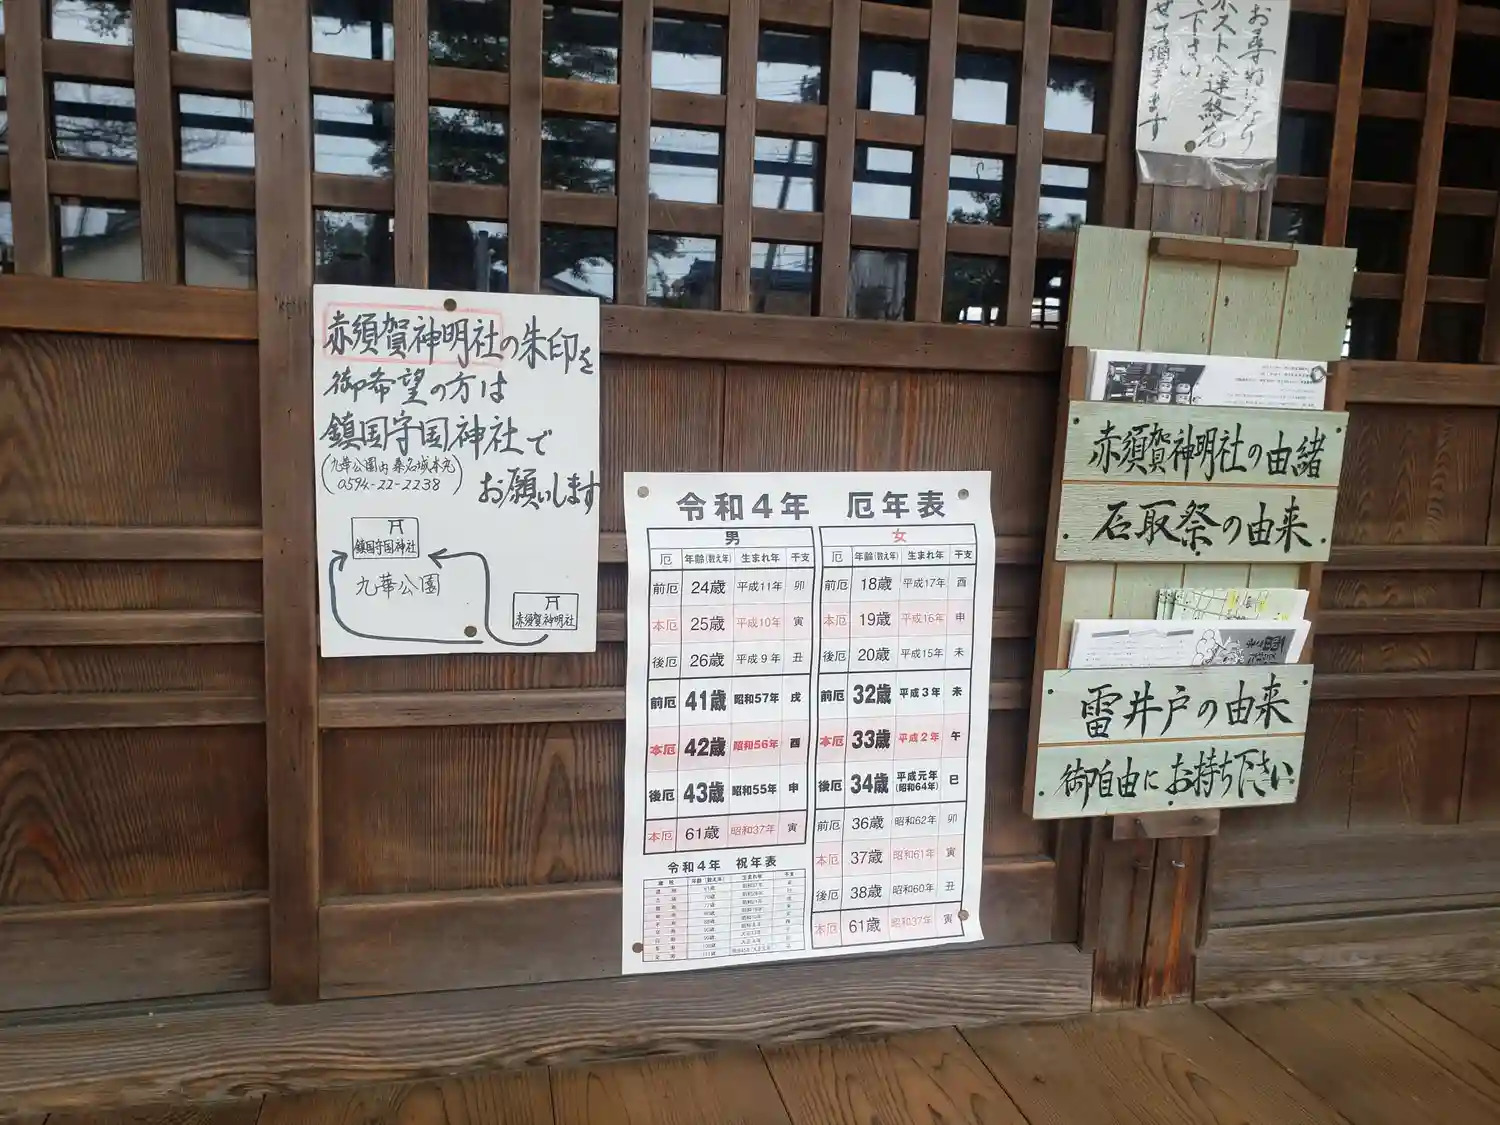 赤須賀神明社の朱印を
御希望の方は
鎮国守国神社で
(九華公園内 桑名城本丸
0594-22-2238)
お願いします
鎮国守国神社
九華公園
赤須賀神明社
令和4年 厄年表
男
厄 年齢(数え年) 生まれ年 干支
前厄 24歳 平成11年 卯
本厄 25歳 平成10年 寅
後厄 26歳 平成9年 丑
前厄 41歳 昭和57年 戌
本厄 42歳 昭和56年 酉
後厄 43歳 昭和55年 申
本厄 61歳 昭和37年 寅
女
厄 年齢(数え年) 生まれ年 干支
前厄 18歳 平成17年 酉
本厄 19歳 平成16年 申
後厄 20歳 平成15年 未
前厄 32歳 平成3年 未
本厄 33歳 平成2年 午
後厄 34歳 平成元年(昭和64年) 巳
前厄 36歳 昭和62年 卯
本厄 37歳 昭和61年 寅
後厄 38歳 昭和60年 丑
本厄 61歳 昭和37年 寅
令和4年 祝年表
年齢(数え年) 生まれ年 干支
お尋ねになり
ポストへ連絡先
下さい
せて頂きます
赤須賀神明社の由緒
石取祭の由来
雷井戸の由来
御自由にお持ち下さい